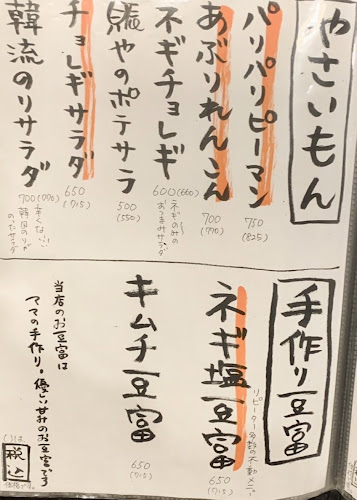 やさいもん
パリパリピーマン
750
(825)
あぶりれんこん
700
(770)
ネギチョレギ
600(660)
ネギのみの
おつまみサラダ
賑やのポテサラ
500
(550)
チョレギサラダ
650
(715)
韓流のりサラダ
700(770)
辛くない!!
韓国のりが
のったサラダ
手作り豆富
ネギ塩豆富
リピーター多数の不動メニュー
650
(715)
キムチ豆富
650
(715)
当店のお豆富は
ママの手作り。優しい甘みのお豆富です
( )は、
税込
価格です。